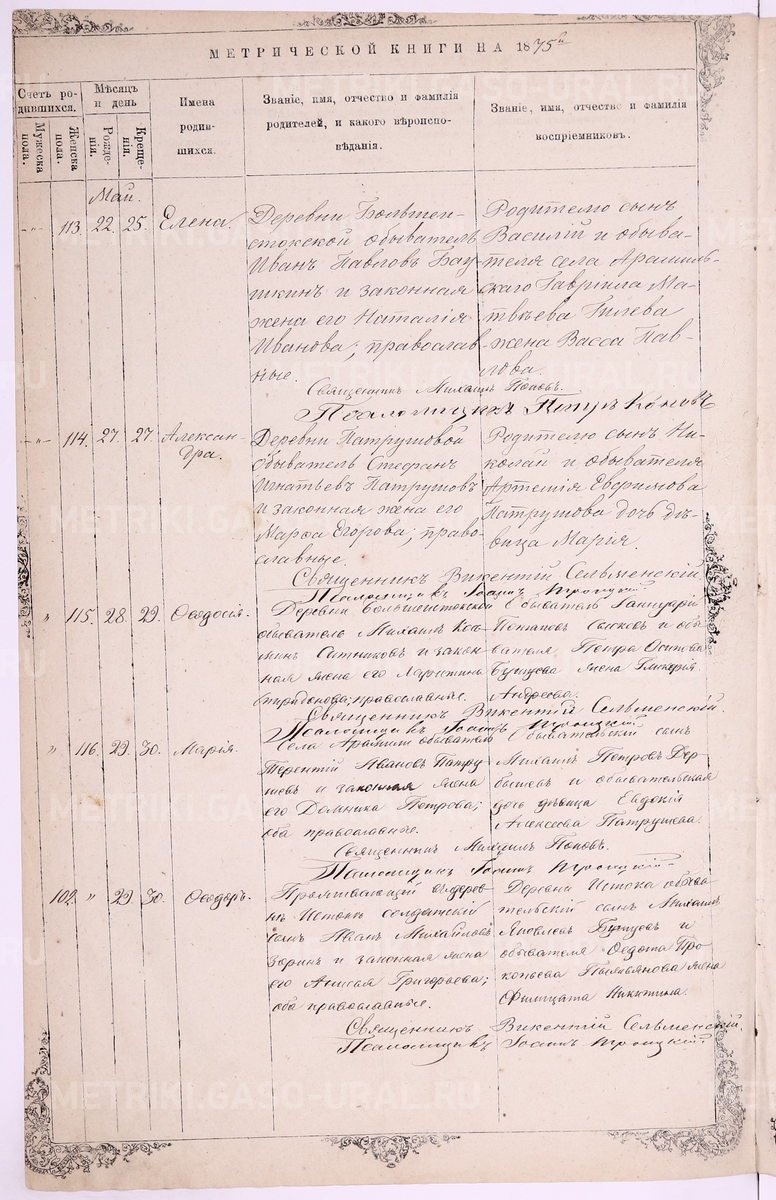 МЕТРИЧЕСКОЙ КНИГИ НА 1875й
Счетъ ро-
дившихся.
Мужеска
пола.
Женска
пола.
Мѣсяцъ
и день
Рожде-
нія.
Креще-
нія.
Имена
родив-
шихся.
Званіе, имя, отчество и фамилія
родителей, и какого вѣроиспо-
вѣданія.
Званіе, имя, отчество и фамилія
воспріемниковъ.
Май.
-"- 113. 22. 25. Елена.
Деревни Большеи-
стокской обыватель
Иванъ Павловъ Бау-
шкинъ и законная
жена его Наталія
Иванова; православ-
ные.
Родителю сынъ
Василій и обыва-
теля села Арамиль-
скаго Гавріила Ма-
твѣева Гилева
жена Васса Пав-
лова.
Священникъ Михаилъ Поповъ.
Псаломщикъ Петръ Коновъ
-"- 114. 27. 27. Алексан-
дра.
Деревни Патрушовой
обыватель Стефанъ
Игнатьевъ Патрушовъ
и законная жена его
Марфа Егорова; право-
славные.
Родителю сынъ Ни-
колай и обывателя
Артемія Евфимова
Патрушова дочь дѣ-
вица Марія.
Священникъ Викентій Сельменскій
Псаломщикъ Іоаннъ Троицкій
" 115. 28. 29. Ѳеодосія.
Деревни Большеистокской
обыватель Михаилъ Кось-
минъ Ситниковъ и закон-
ная жена его
Спиридонова; православные.
Обыватель Іаннуарій
Потаповъ и обы-
вателя Петра Осипова
жена Гликерія
Андреева.
Священникъ Викентій Сельменскій.
Псаломщикъ Іоаннъ Троицкій
" 116. 29. 30. Марія.
Села Арамили обыватель
Терентій Ивановъ Патру-
шевъ и законная жена
его Домника Петрова;
оба православные.
Обывательскій сынъ
Михаилъ Петровъ Дер-
бышевъ и обывательская
дочь дѣвица Евдокія
Алексѣева Патрушева.
Священникъ Михаилъ Поповъ.
Псаломщикъ Іоаннъ Троицкій
102. " 29 30. Ѳеодоръ.
Проживающій въ дерев-
нѣ Истокѣ солдатскій
сынъ Иванъ Михайловъ
Зоринъ и законная жена
его Анисья Григорьева;
оба православные.
Деревни Истока обыва-
тельскій сынъ Михаилъ
Яковлевъ и
обывателя Ѳедота Про-
копьева жена
Филицата Никитина.
Священникъ Викентій Сельменскій.
Псаломщикъ Іоаннъ Троицкій
METRIKI.GASO-URAL.RU